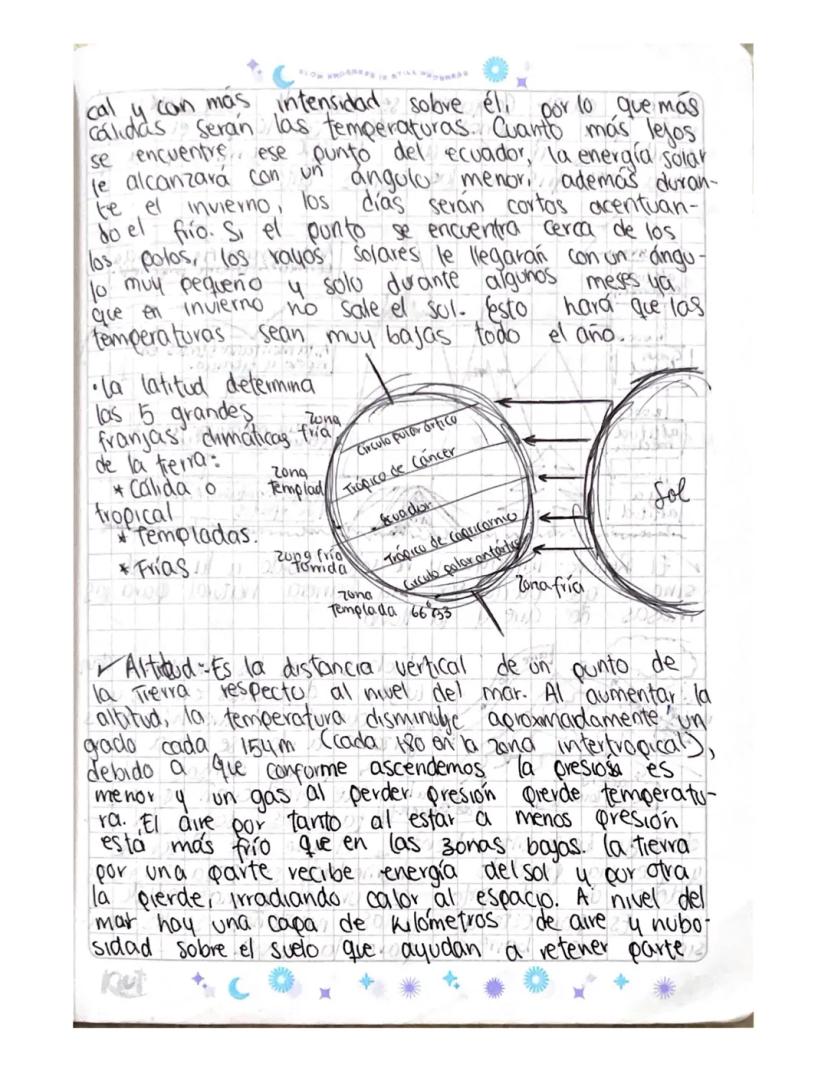 SLOW PROGRESS IS STILL PROGRESS
cal y con más intensidad sobre él, por lo que más
cálidas serán las temperaturas. Cuanto más lejos
se encuentre ese punto del ecuador, la energía solar
le alcanzará con un ángulo menor, además duran-
te el invierno, los días serán cortos acentuan-
do el frío. Si el punto se encuentra cerca de los
los polos, los rayos solares le llegarán con un ángu-
lo muy pequeño y solo durante algunos meses ya
que en invierno no sale el sol. Esto hará que las
temperaturas sean muy bajas todo el año.
•La latitud determina
las 5 grandes
franjas climáticas
de la tierra:
* Cálida o
tropical
* Templadas.
* Frías.
Zona
fría
Zona
Templad
Zona frío
Tomida
Zona
Templada
66°33
Zona fría
Circulo polar ártico
Trópico de Cáncer
Ecuador
Trópico de capricornio
Circulo polar antártico
Sol
✓ Altitud:-Es la distancia vertical de un punto de
la Tierra respecto al nivel del mar. Al aumentar la
altitud, la temperatura disminuye aproximardamente un
grado cada 154m (cada 180 en la zona intertropical),
debido a que conforme ascendemos la presiosa es
menor y un gas al perder presión pierde temperatu-
ra. El aire por tanto al estar a menos presión
está más frío que en las zonas bajas. la tierra
por una parte recibe energía del sol y por otra
la pierde, irradiando calor al espacio. A nivel del
mar hay una capa de Kilómetros de aire y nubo-
sidad sobre el suelo que ayudan a retener parte